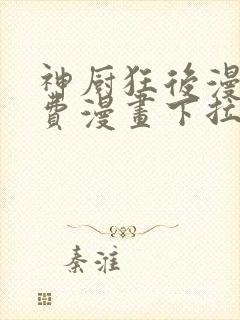 神厨狂後漫
費漫畫下拉
秦淮